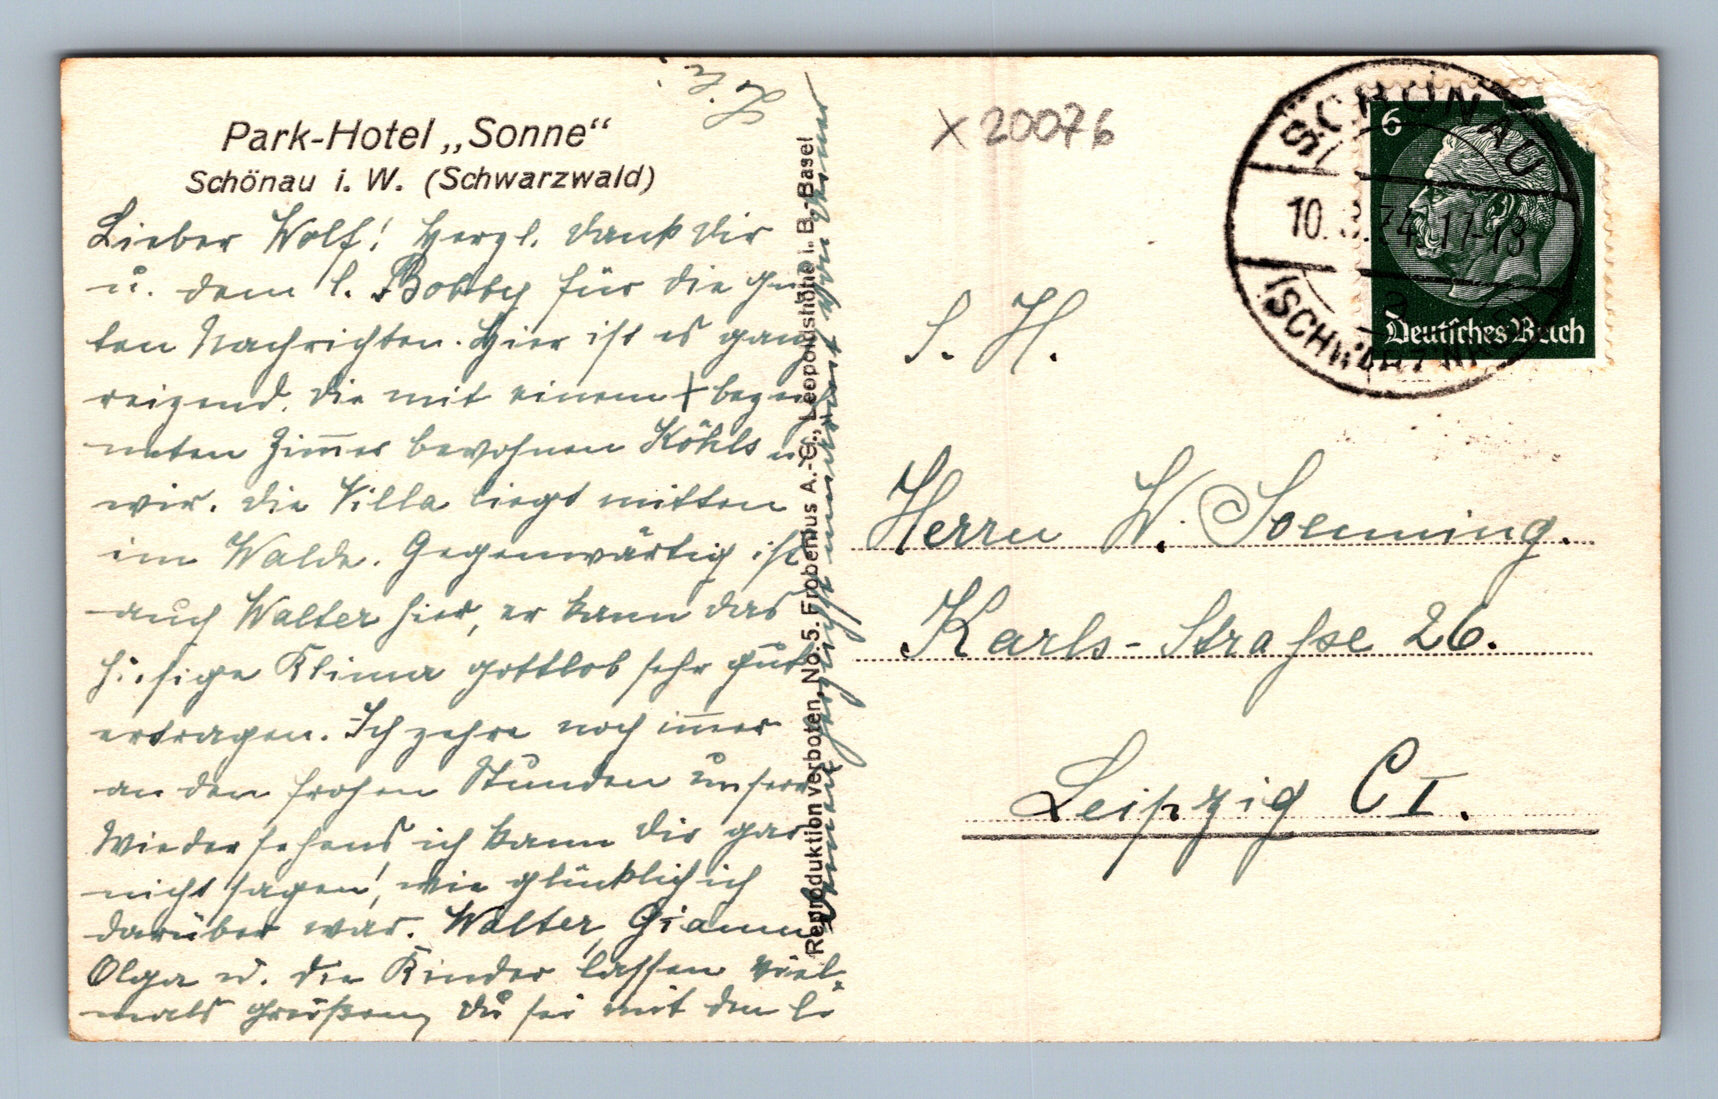 Park-Hotel „Sonne“
Schönau i. W. (Schwarzwald)
Lieber Wolf! Herzl. Dank Dir
u. dem l. Bobby für die gu-
ten Nachrichten. Hier ist es ganz
reizend. Die mit einem + bezeich-
neten Zimmer bewohnen Köhls u.
wir. Die Villa liegt mitten
im Walde. Gegenwärtig ist
auch Walter hier, er kann das
hiesige Klima gottlob sehr gut
ertragen. Ich zehre noch im̄er
an den frohen Stunden unseres
Wiedersehens ich kann Dir gar
nicht sagen, wie glücklich ich
darüber war. Walter, Gianna
Olga u. die Kinder lassen viel-
mals grüßen, Du sei mit den l.
Reproduktion verboten, No. 5. Frobenius A.-G., Leopoldshöhe i. B.-Basel
X 20076
S. H.
Herrn W. Soenning.
Karls-Straße 26.
Leipzig C I.
SCHÖNAU
10. 8. 34. 17-18
a
(SCHWARZWALD)
6
Deutsches Reich